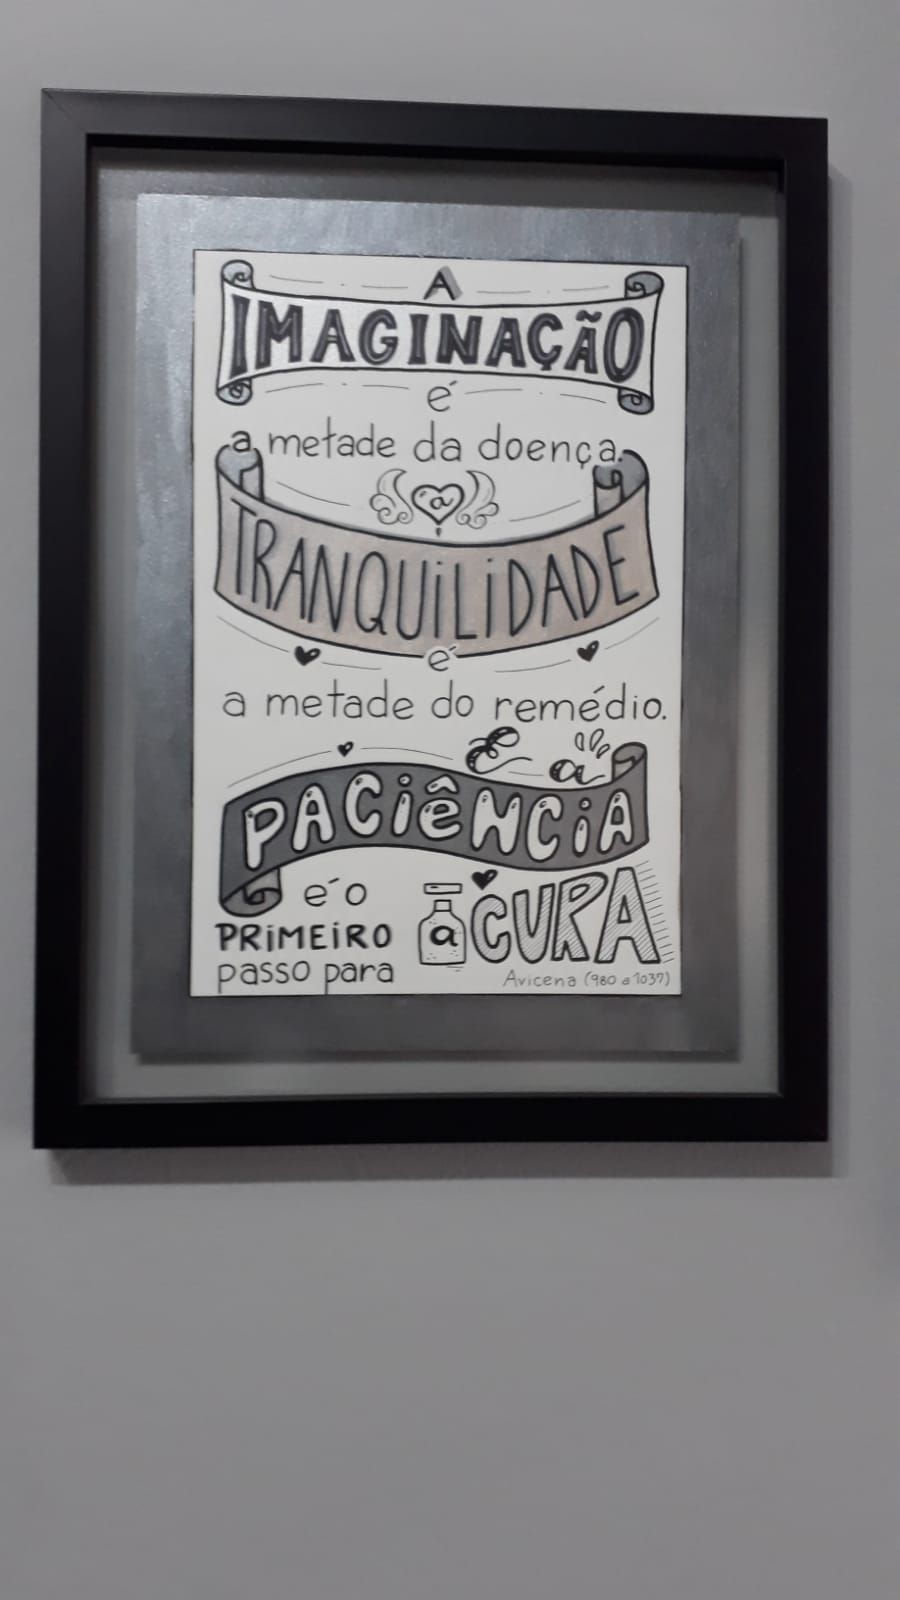 A
IMAGINAÇÃO
é
a metade da doença.
a
TRANQUILIDADE
é
a metade do remédio.
E a
PACIÊNCIA
é o
PRIMEIRO
passo para
a CURA
Avicena (980 a 1037)